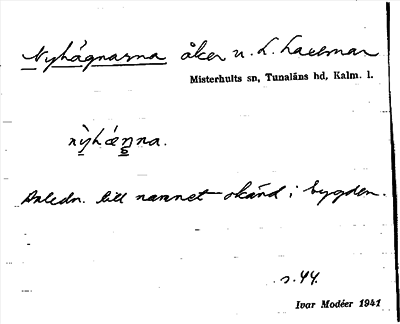 Nyhägnarna åker u. L. Laxemar
Misterhults sn, Tunaläns hd, Kalm. l.
nỳhæ̀n̥na.
Anledn. till namnet okänd i bygden.
s. 44.
Ivar Modéer 1941